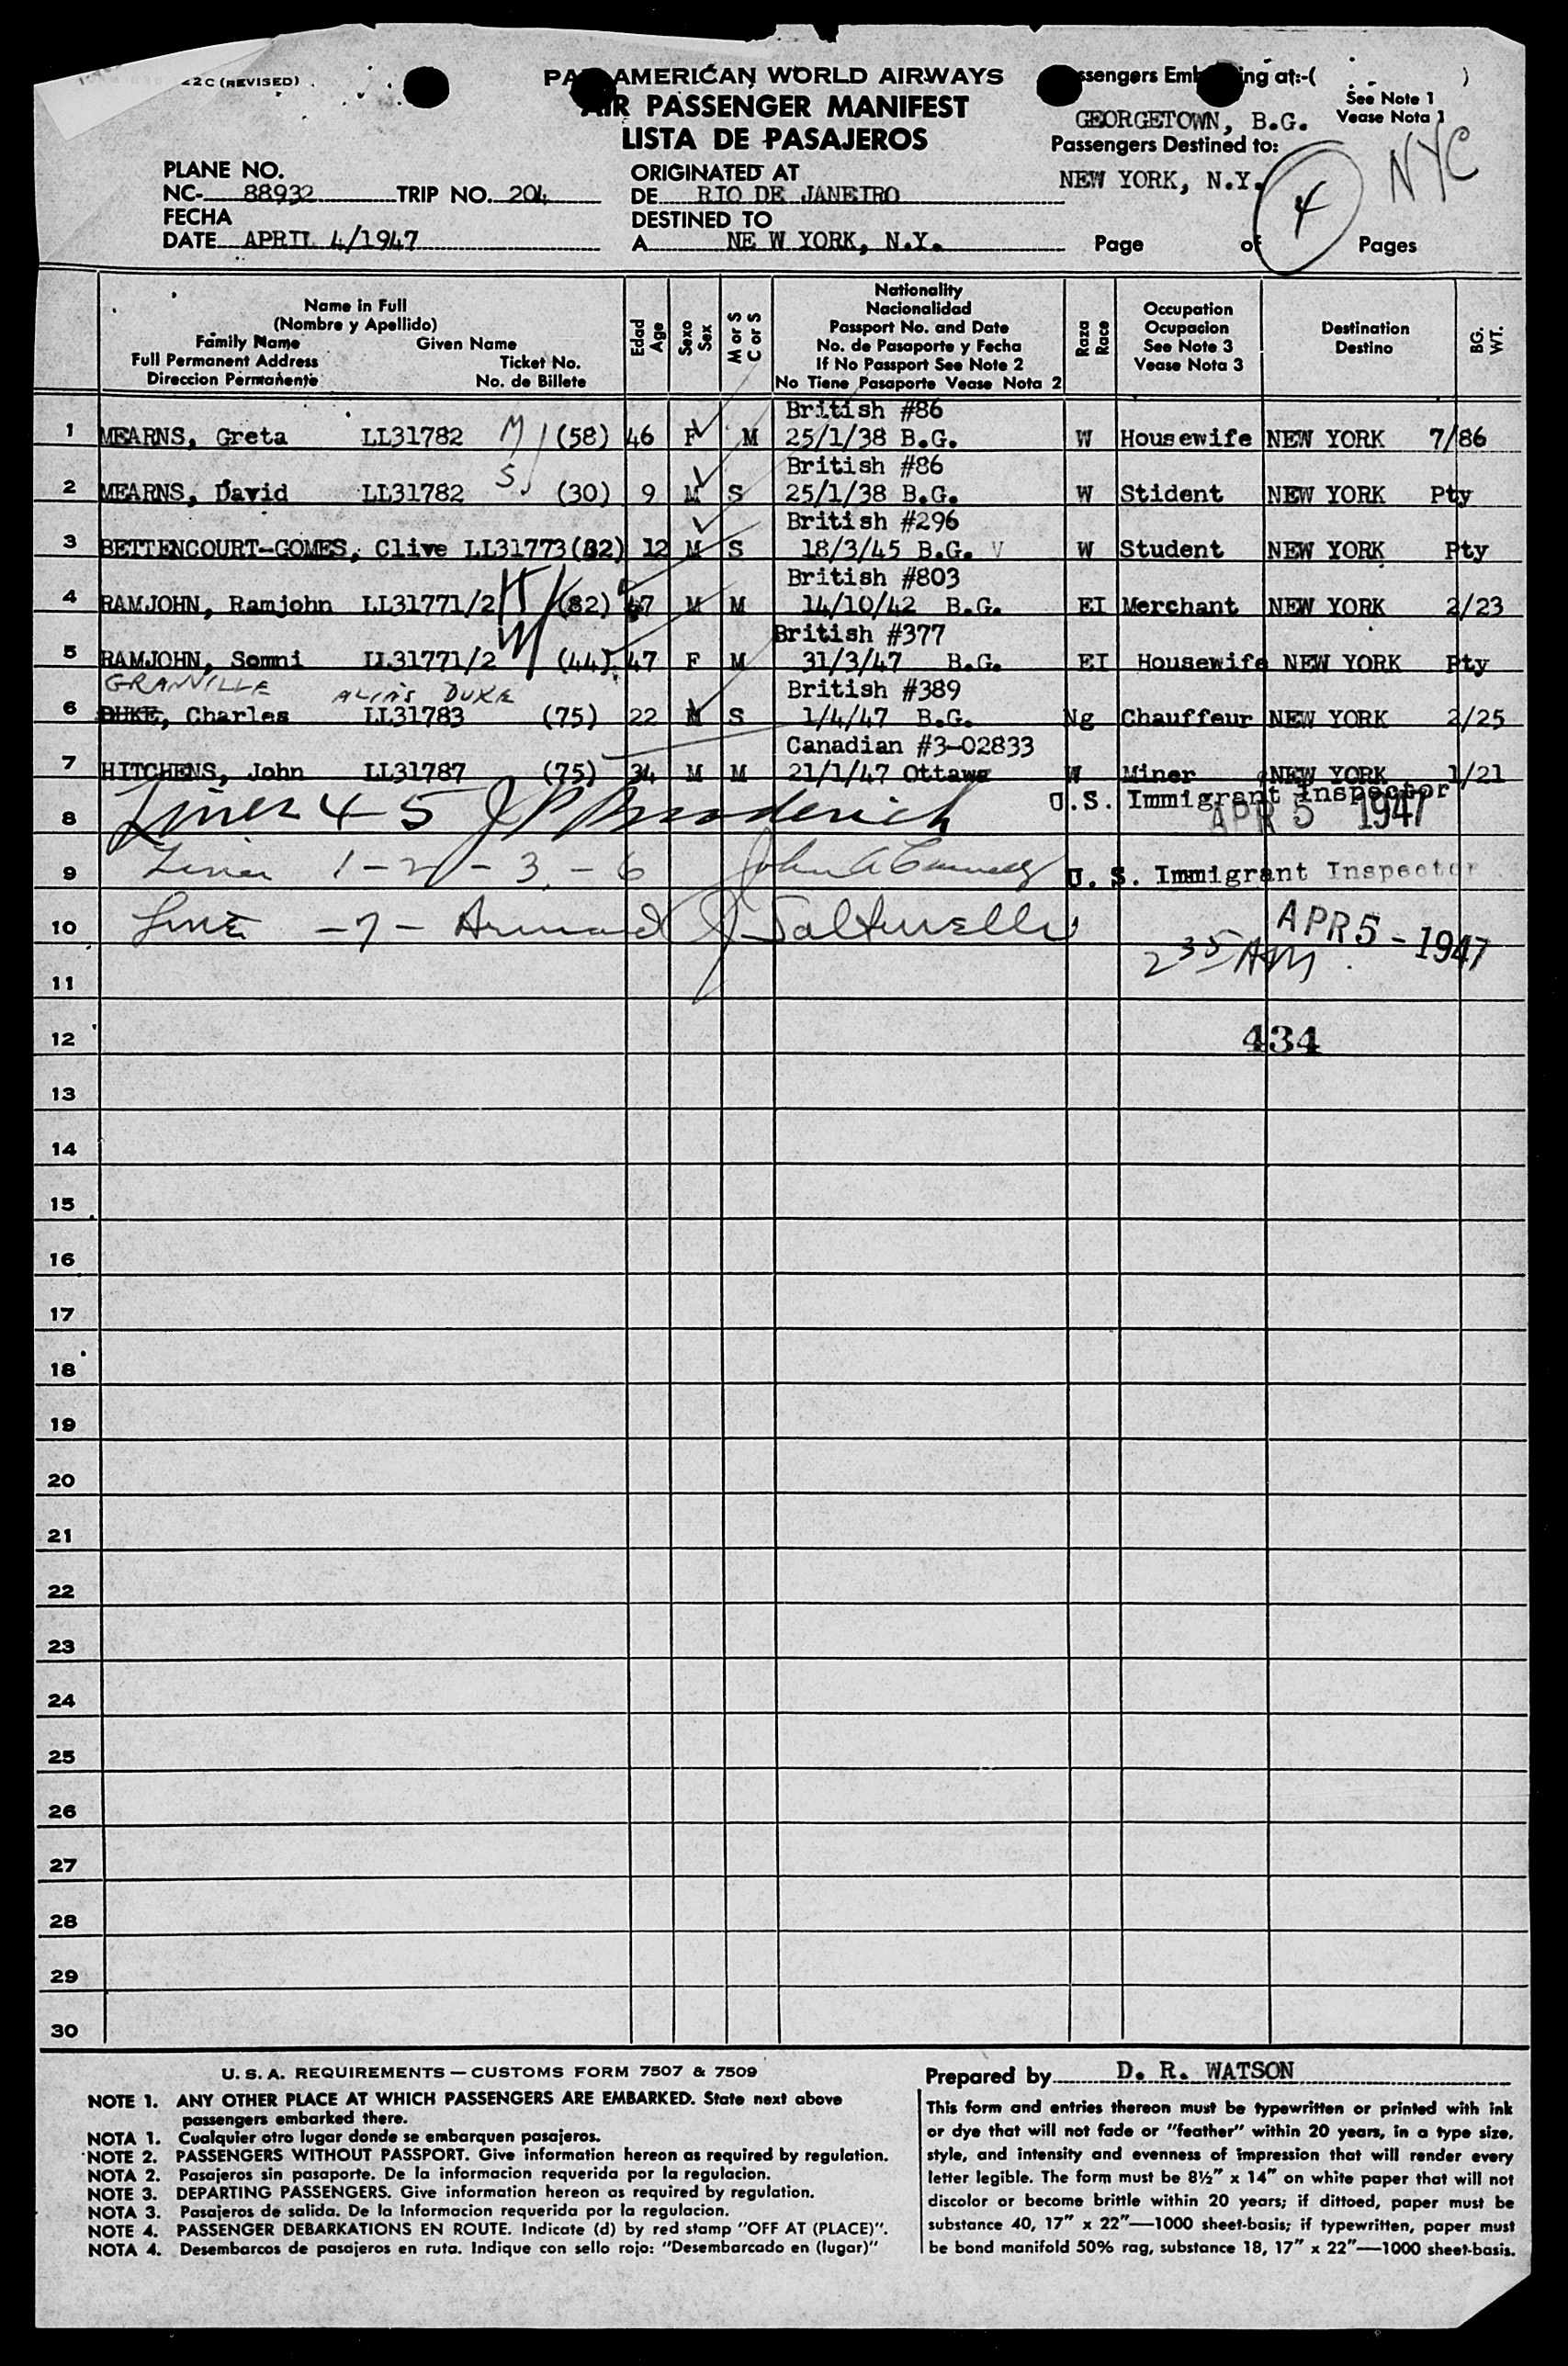 22C (REVISED)
PAN AMERICAN WORLD AIRWAYS
AIR PASSENGER MANIFEST
LISTA DE PASAJEROS
Passengers Embarking at:-( )
See Note 1
Vease Nota 1
GEORGETOWN, B.G.
Passengers Destined to:
NEW YORK, N.Y.
NYC
4
PLANE NO.
NC- 88932 TRIP NO. 204
FECHA
DATE APRIL 4/1947
ORIGINATED AT
DE RIO DE JANEIRO
DESTINED TO
A NE W YORK, N.Y.
Page of Pages
Name in Full
(Nombre y Apellido)
Family Name Given Name
Full Permanent Address Ticket No.
Direccion Permanente No. de Billete
Edad
Age
Sexo
Sex
M or S
C or S
Nationality
Nacionalidad
Passport No. and Date
No. de Pasaporte y Fecha
If No Passport See Note 2
No Tiene Pasaporte Vease Nota 2
Raza
Race
Occupation
Ocupacion
See Note 3
Vease Nota 3
Destination
Destino
BG.
WT.
British #86
1 MEARNS, Greta LL31782 M (58) 46 F M 25/1/38 B.G. W Housewife NEW YORK 7/86
British #86
2 MEARNS, David LL31782 S (30) 9 M S 25/1/38 B.G. W Stident NEW YORK Pty
British #296
3 BETTENCOURT-GOMES, Clive LL31773(82) 12 M S 18/3/45 B.G. V W Student NEW YORK Pty
British #803
4 RAMJOHN, Ramjohn LL31771/2 H (82) 47 M M 14/10/42 B.G. EI Merchant NEW YORK 2/23
British #377
5 RAMJOHN, Somni LL31771/2 W (44) 47 F M 31/3/47 B.G. EI Housewife NEW YORK Pty
GRANVILLE ALIAS DUKE
British #389
6 DUKE, Charles LL31783 (75) 22 M S 1/4/47 B.G. Ng Chauffeur NEW YORK 2/25
Canadian #3-02833
7 HITCHENS, John LL31787 (75) 34 M M 21/1/47 Ottawa W Miner NEW YORK 1/21
8 Lines 4-5 J P Broderick U.S. Immigrant Inspector
APR 5 1947
9 Lines 1-2-3-6 John A U. S. Immigrant Inspector
10 Line -7- Armand J APR 5-1947
2 35 AM
11
12 434
13
14
15
16
17
18
19
20
21
22
23
24
25
26
27
28
29
30
U. S. A. REQUIREMENTS — CUSTOMS FORM 7507 & 7509
NOTE 1. ANY OTHER PLACE AT WHICH PASSENGERS ARE EMBARKED. State next above
passengers embarked there.
NOTA 1. Cualquier otro lugar donde se embarquen pasajeros.
NOTE 2. PASSENGERS WITHOUT PASSPORT. Give information hereon as required by regulation.
NOTA 2. Pasajeros sin pasaporte. De la informacion requerida por la regulacion.
NOTE 3. DEPARTING PASSENGERS. Give information hereon as required by regulation.
NOTA 3. Pasajeros de salida. De la Informacion requerida por la regulacion.
NOTE 4. PASSENGER DEBARKATIONS EN ROUTE. Indicate (d) by red stamp "OFF AT (PLACE)".
NOTA 4. Desembarcos de pasajeros en ruta. Indique con sello rojo: "Desembarcado en (lugar)"
Prepared by D. R. WATSON
This form and entries thereon must be typewritten or printed with ink
or dye that will not fade or "feather" within 20 years, in a type size,
style, and intensity and evenness of impression that will render every
letter legible. The form must be 8½" x 14" on white paper that will not
discolor or become brittle within 20 years; if dittoed, paper must be
substance 40, 17" x 22"—1000 sheet-basis; if typewritten, paper must
be bond manifold 50% rag, substance 18, 17" x 22"—1000 sheet-basis.